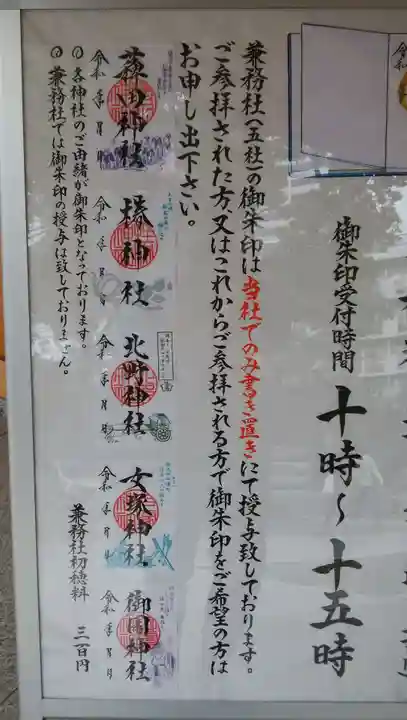 御朱印受付時間
十時～十五時
兼務社（五社）の御朱印は当社でのみ書き置きにて授与致しております。
ご参拝された方、又はこれからご参拝される方で御朱印をご希望の方は
お申し出下さい。
神社
令和 年 月 日
塚神社
令和 年 月 日
北野神社
令和 年 月 日
女塚神社
令和 年 月 日
御園神社
令和 年 月 日
◎各神社のご由緒が御朱印となっております。
◎兼務社では御朱印の授与は致しておりません。
兼務社初穂料 三百円